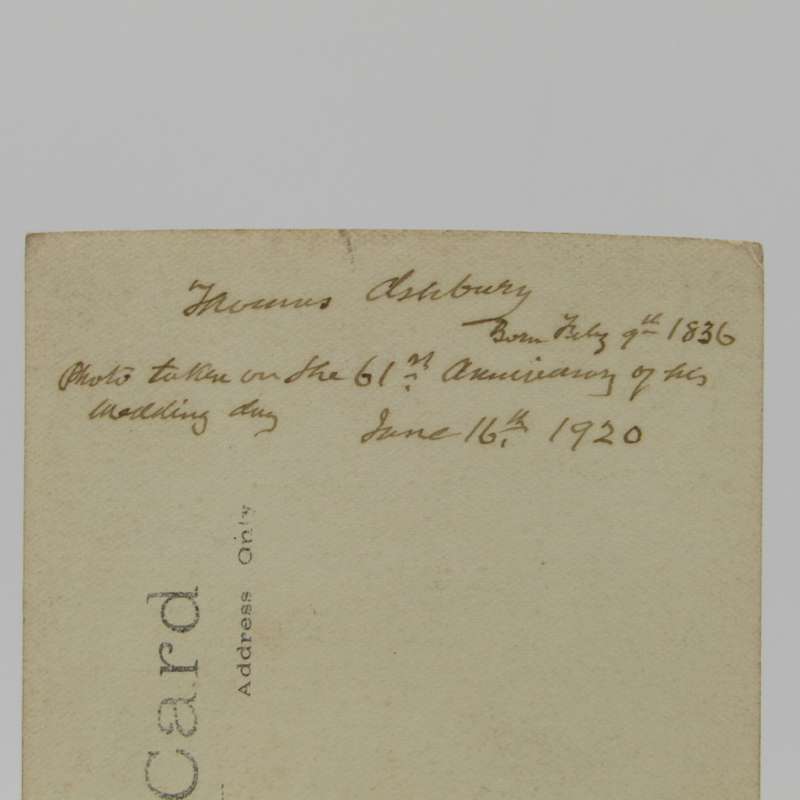 Thomas Ashbury
Born Feby 9th 1836
Photo taken on the 61st Anniversary of his
Wedding day June 16th 1920
Card
Address Only